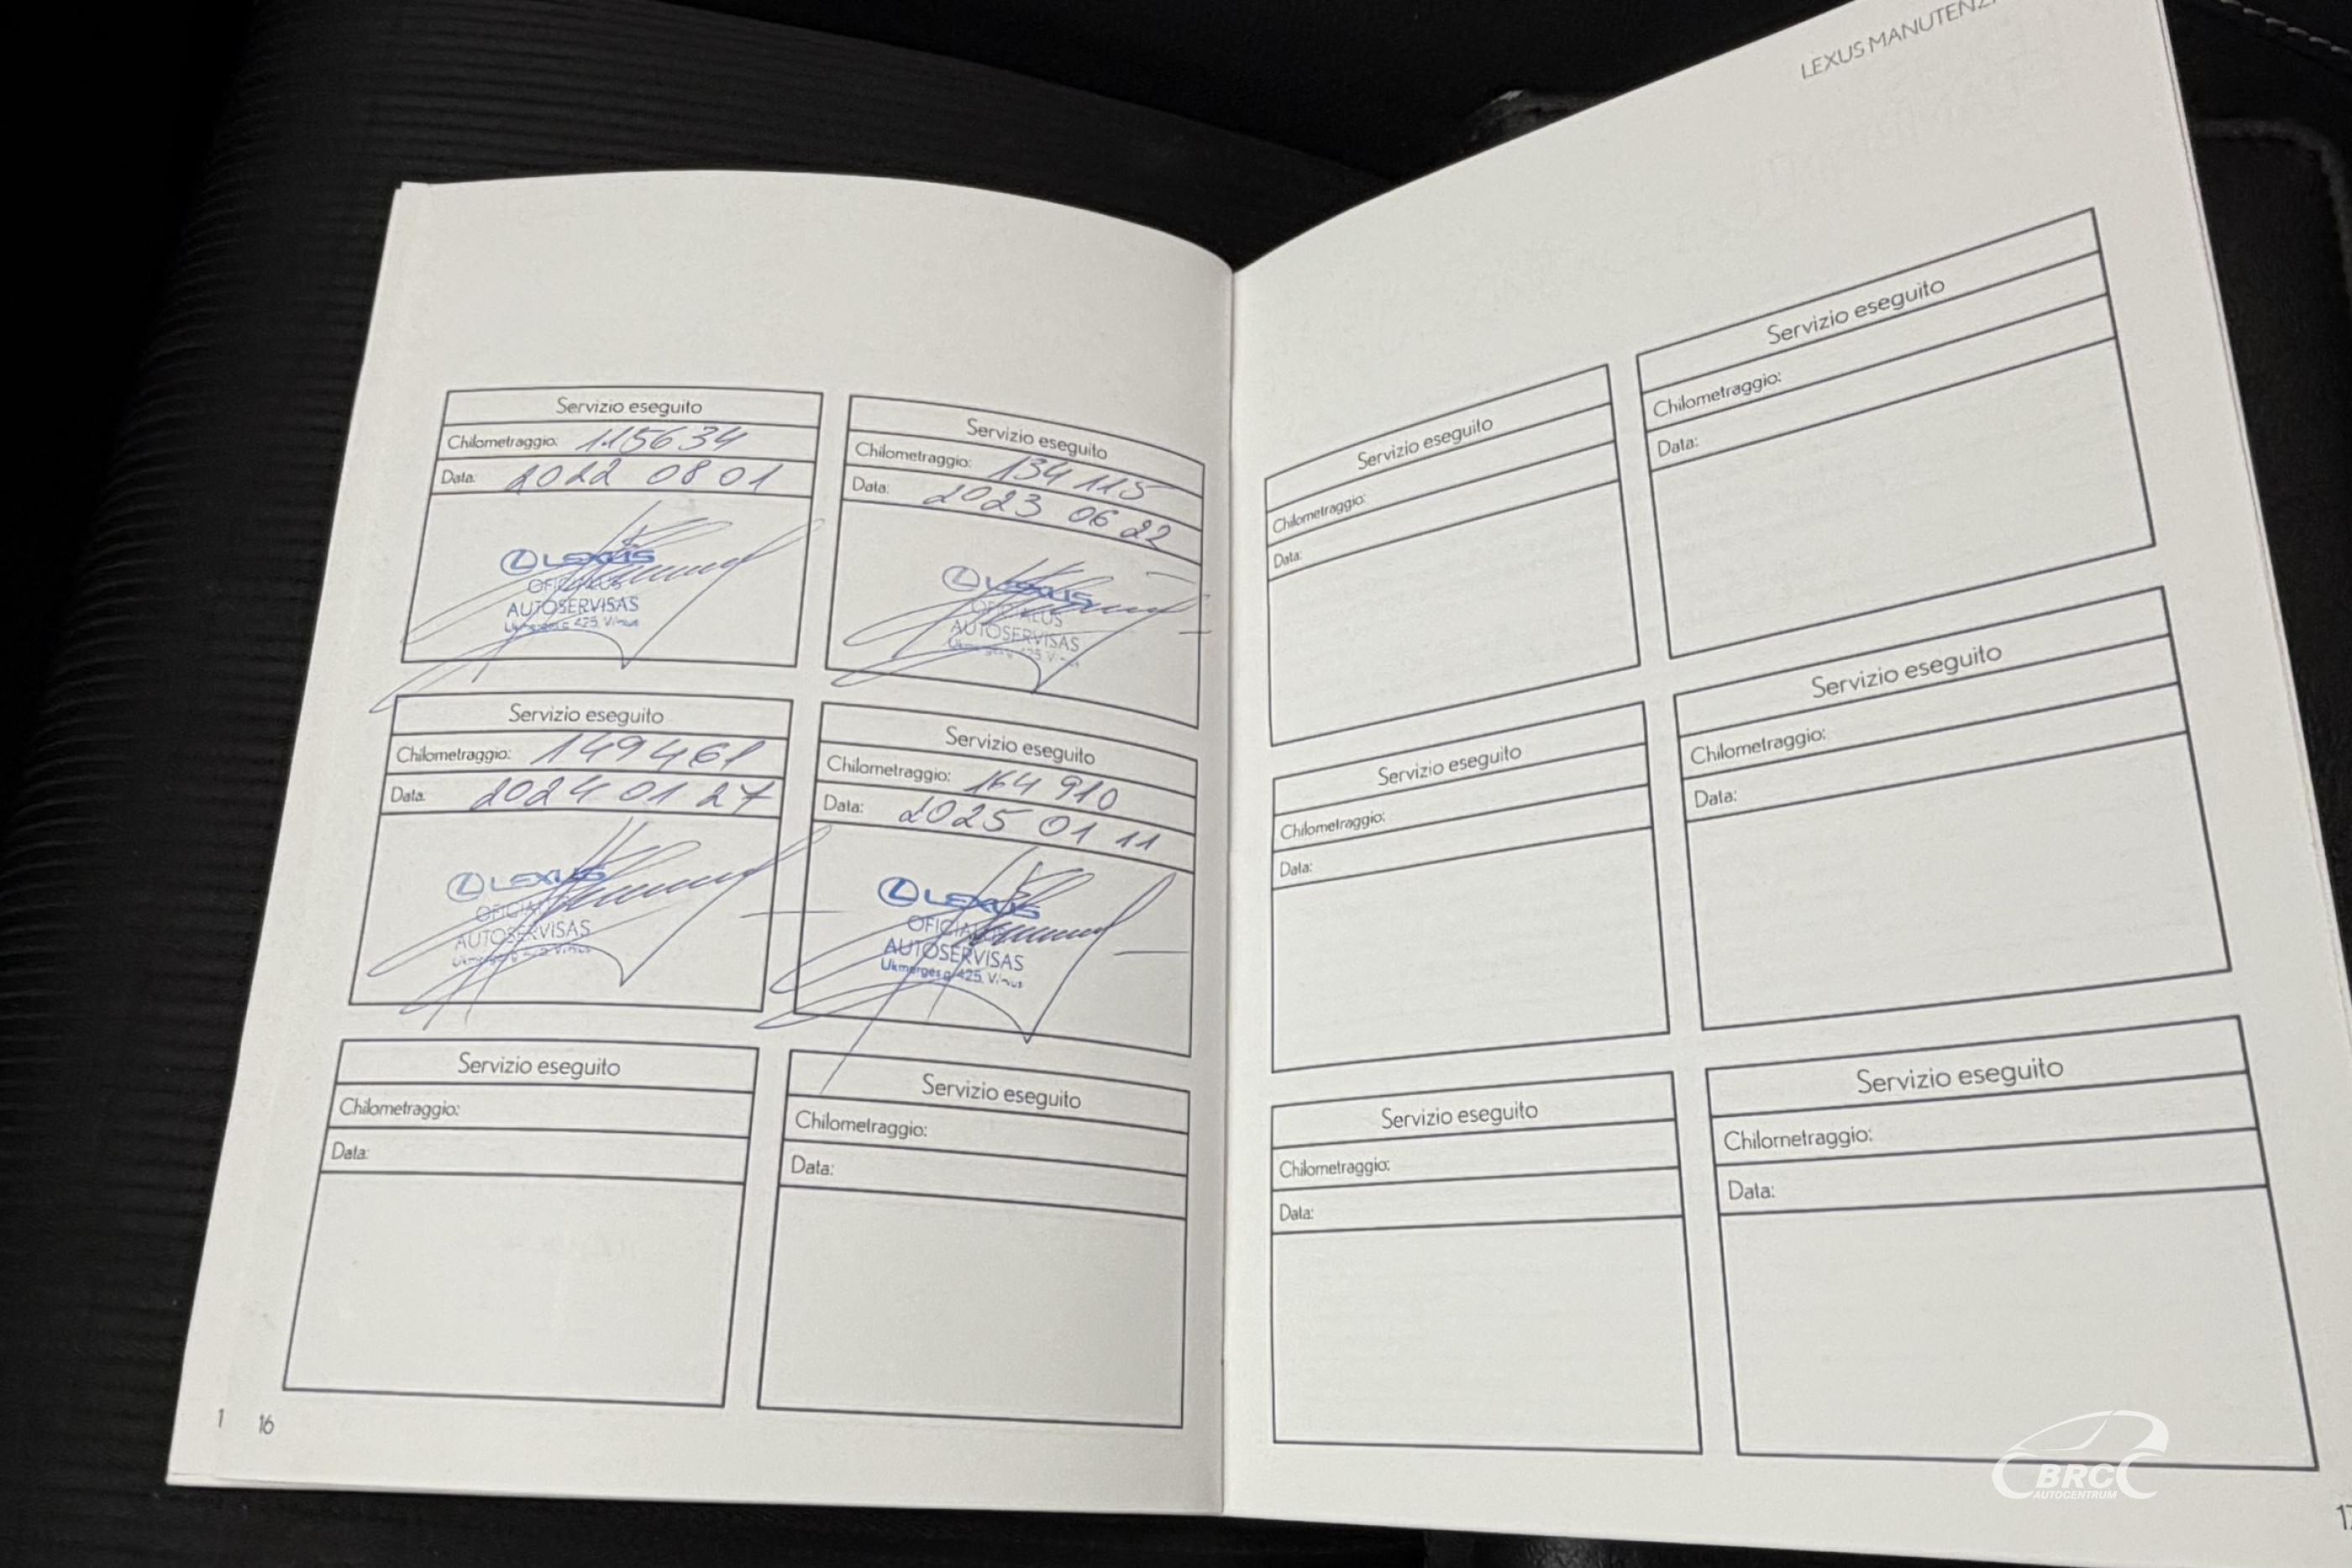 Servizio eseguito
Chilometraggio: 115634
Data: 2022 08 01
LEXUS
OFICIALUS
AUTOSERVISAS
Ukmergės g. 425, Vilnius
Servizio eseguito
Chilometraggio: 134 115
Data: 2023 06 22
LEXUS
OFICIALUS
AUTOSERVISAS
Ukmergės g. 425, Vilnius
Servizio eseguito
Chilometraggio: 149461
Data: 2024 01 27
LEXUS
OFICIALUS
AUTOSERVISAS
Ukmergės g. 425, Vilnius
Servizio eseguito
Chilometraggio: 164 910
Data: 2025 01 11
LEXUS
OFICIALUS
AUTOSERVISAS
Ukmergės g. 425, Vilnius
Servizio eseguito
Chilometraggio:
Data:
Servizio eseguito
Chilometraggio:
Data:
1 16
LEXUS MANUTENZI
Servizio eseguito
Chilometraggio:
Data:
Servizio eseguito
Chilometraggio:
Data:
Servizio eseguito
Chilometraggio:
Data:
Servizio eseguito
Chilometraggio:
Data:
Servizio eseguito
Chilometraggio:
Data:
Servizio eseguito
Chilometraggio:
Data:
17
BRC
AUTOCENTRUM